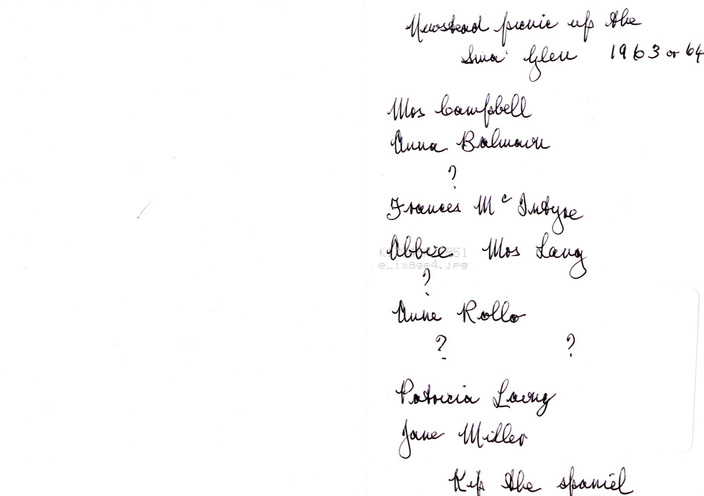 Newstead picnic up the
Sma' Glen 1963 or 64
Mrs Campbell
Anna Balmain
?
Frances Mc Intyre
Abbie Mrs Lang
?
Anne Rollo
? ?
Patricia Laing
Jane Miller
Kip the spaniel